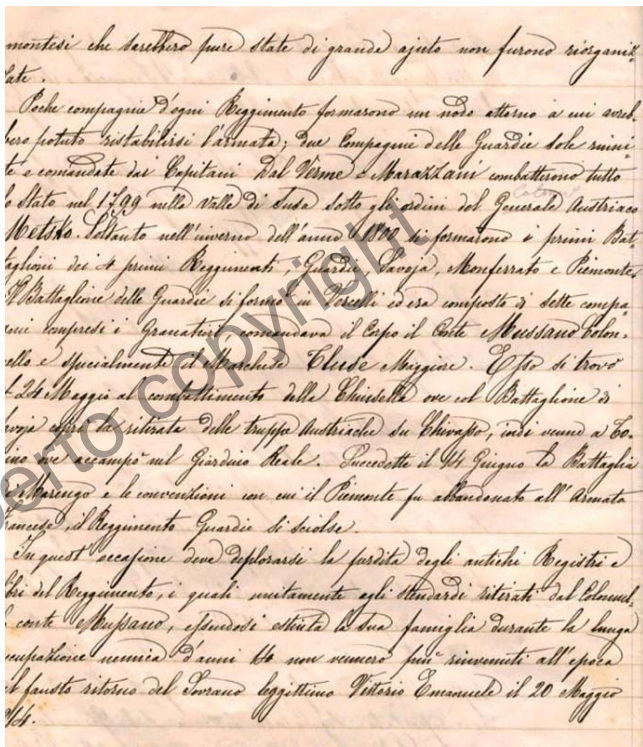 montesi che sarebbero pure state di grande ajuto non furono riorganiz
zate.
Poche compagnie d'ogni Reggimento formarono un nodo attorno a cui avreb
bero potuto ristabilirsi l'armata; due Compagnie delle Guardie sole riuni
te e comandate dai Capitani Dal Verme e Marazzani combatterono tutto
lo Stato nel 1799 nella Valle di Susa sotto gli ordini del Generale Austriaco
Metsko. Soltanto nell'inverno dell'anno 1800 si formarono i primi Bat
taglioni dei 4 primi Reggimenti, Guardie, Savoja, Monferrato e Piemonte.
Il Battaglione delle Guardie si formò in Vercelli ed era composto di sette compa
gnie compresi i Granatieri, comandava il Corpo il Conte Mussano Colon-
nello e specialmente il Marchese Cluse Maggiore. Esso si trovò
il 24 Maggio al combattimento della Chiusella ove col Battaglione di
Savoja coprì la ritirata delle truppe Austriache su Chivasso, indi venne a To-
rino ove accampò nel Giardino Reale. Succedette il 14 Giugno la Battaglia
di Marengo e le convenzioni con cui il Piemonte fu abbandonato all'Armata
francese, il Reggimento Guardie si sciolse.
In quest'occasione deve deplorarsi la perdita degli antichi Registri e
libri del Reggimento, i quali unitamente agli stendardi ritirati dal Colonnel,
conte Mussano, essendosi estinta la sua famiglia durante la lunga
occupazione nemica d'anni 14 non vennero più rinvenuti all'epoca
del fausto ritorno del Sovrano leggittimo Vittorio Emanuele il 20 Maggio
1814.
erto copyright